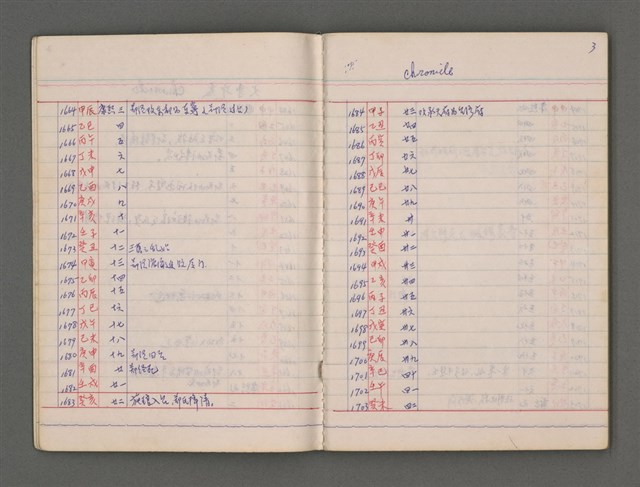 1664 甲辰 康熙 三 鄭經
1665 乙巳 四
1666 丙午 五
1667 丁未 六
1668 戊申 七
1669 己酉 八
1670 庚戌 九
1671 辛亥 十
1672 壬子 十一
1673 癸丑 十二 三藩之乱
1674 甲寅 十三 鄭經
1675 乙卯 十四
1676 丙辰 十五
1677 丁巳 十六
1678 戊午 十七
1679 己未 十八
1680 庚申 十九 鄭經
1681 辛酉 廿 鄭經
1682 壬戌 廿一
1683 癸亥 廿二 施琅入台, 鄭氏降清。
3
Chronicle
1684 甲子 廿三
1685 乙丑 廿四
1686 丙寅 廿五
1687 丁卯 廿六
1688 戊辰
1689 己巳 廿八
1690 庚午
1691 辛未 卅
1692 壬申 卅一
1693 癸酉 卅二
1694 甲戌 卅三
1695 乙亥 卅四
1696 丙子 卅五
1697 丁丑 卅六
1698 戊寅
1699 己卯 卅八
1700 庚辰 卅九
1701 辛巳 四十
1702 壬午 四一
1703 癸未 四二